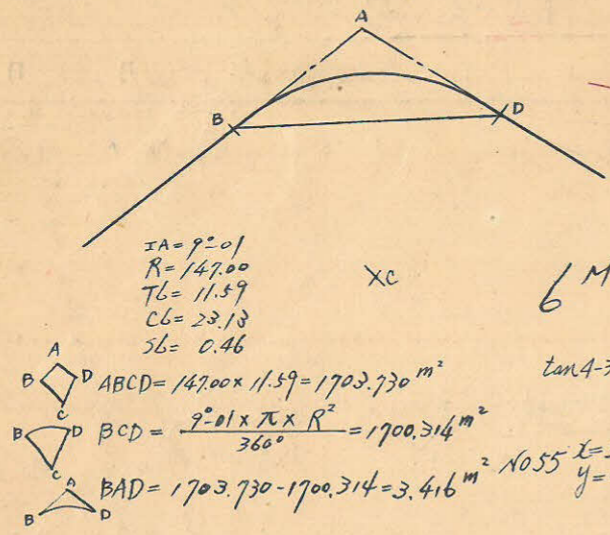 A
B
D
IA = 9°-01
R = 147.00
TL = 11.59
CL = 23.13
SL = 0.46
×C
6 M
A
B D
C
ABCD = 147.00 × 11.59 = 1703.730 m²
tan 4-3
B D
C
BCD = 9°-01 × π × R² / 360° = 1700.314 m²
A
B D
BAD = 1703.730 - 1700.314 = 3.416 m²
NO55 x=
y=